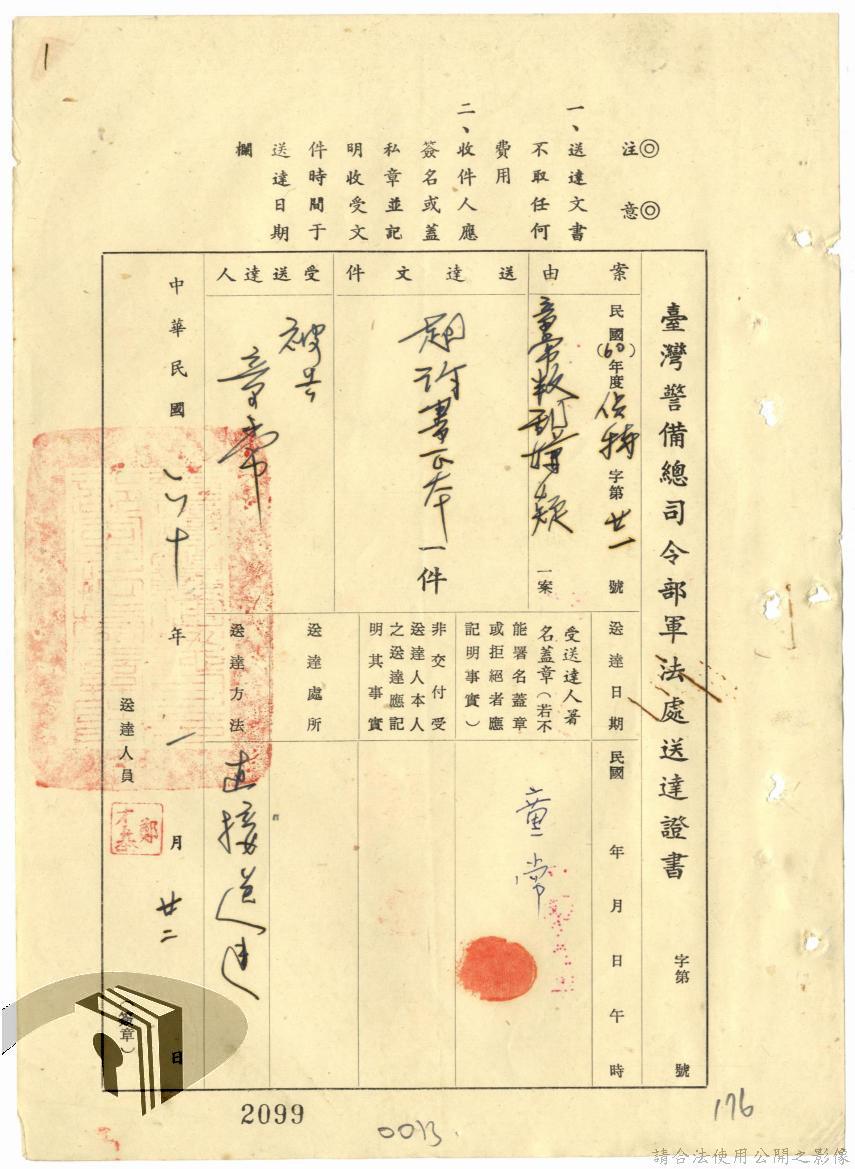 1
◎注意◎
一、送達文書
不取任何
費用
二、收件人應
簽名或蓋
私章並記
明收受文
件時間于
送達日期
欄
臺灣警備總司令部軍法處送達證書
字第 號
案由
民國(60)年度偵特字第廿一號
童常叛亂嫌疑
一案
送達文件
起訴書正本一件
受送達人
被告
童常
送達日期
民國 年 月 日 午 時
受送達人署
名蓋章(若不
能署名蓋章
或拒絕者應
記明事實)
童常
非交付受
送達人本人
之送達應記
明其事實
送達處所
送達方法
直接送達
中華民國六十年一月廿二日
送達人員
(簽章)
2099
0013
176
請合法使用公開之影像